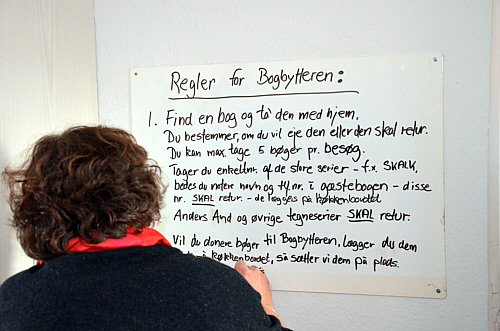 Regler for Bogbytteren:
1. Find en bog og ta' den med hjem.
Du bestemmer, om du vil eje den eller den skal retur.
Du kan max. tage 5 bøger pr. besøg.
Tager du enkeltnr. af de store serier - f.x. SKALK,
bedes du notere navn og tlf.nr. i gæstebogen - disse
nr. SKAL retur. - de lægges på køkkenbordet
Anders And og øvrige tegneserier SKAL retur.
Vil du donere bøger til Bogbytteren, lægger du dem
på køkkenbordet, så sætter vi dem på plads.